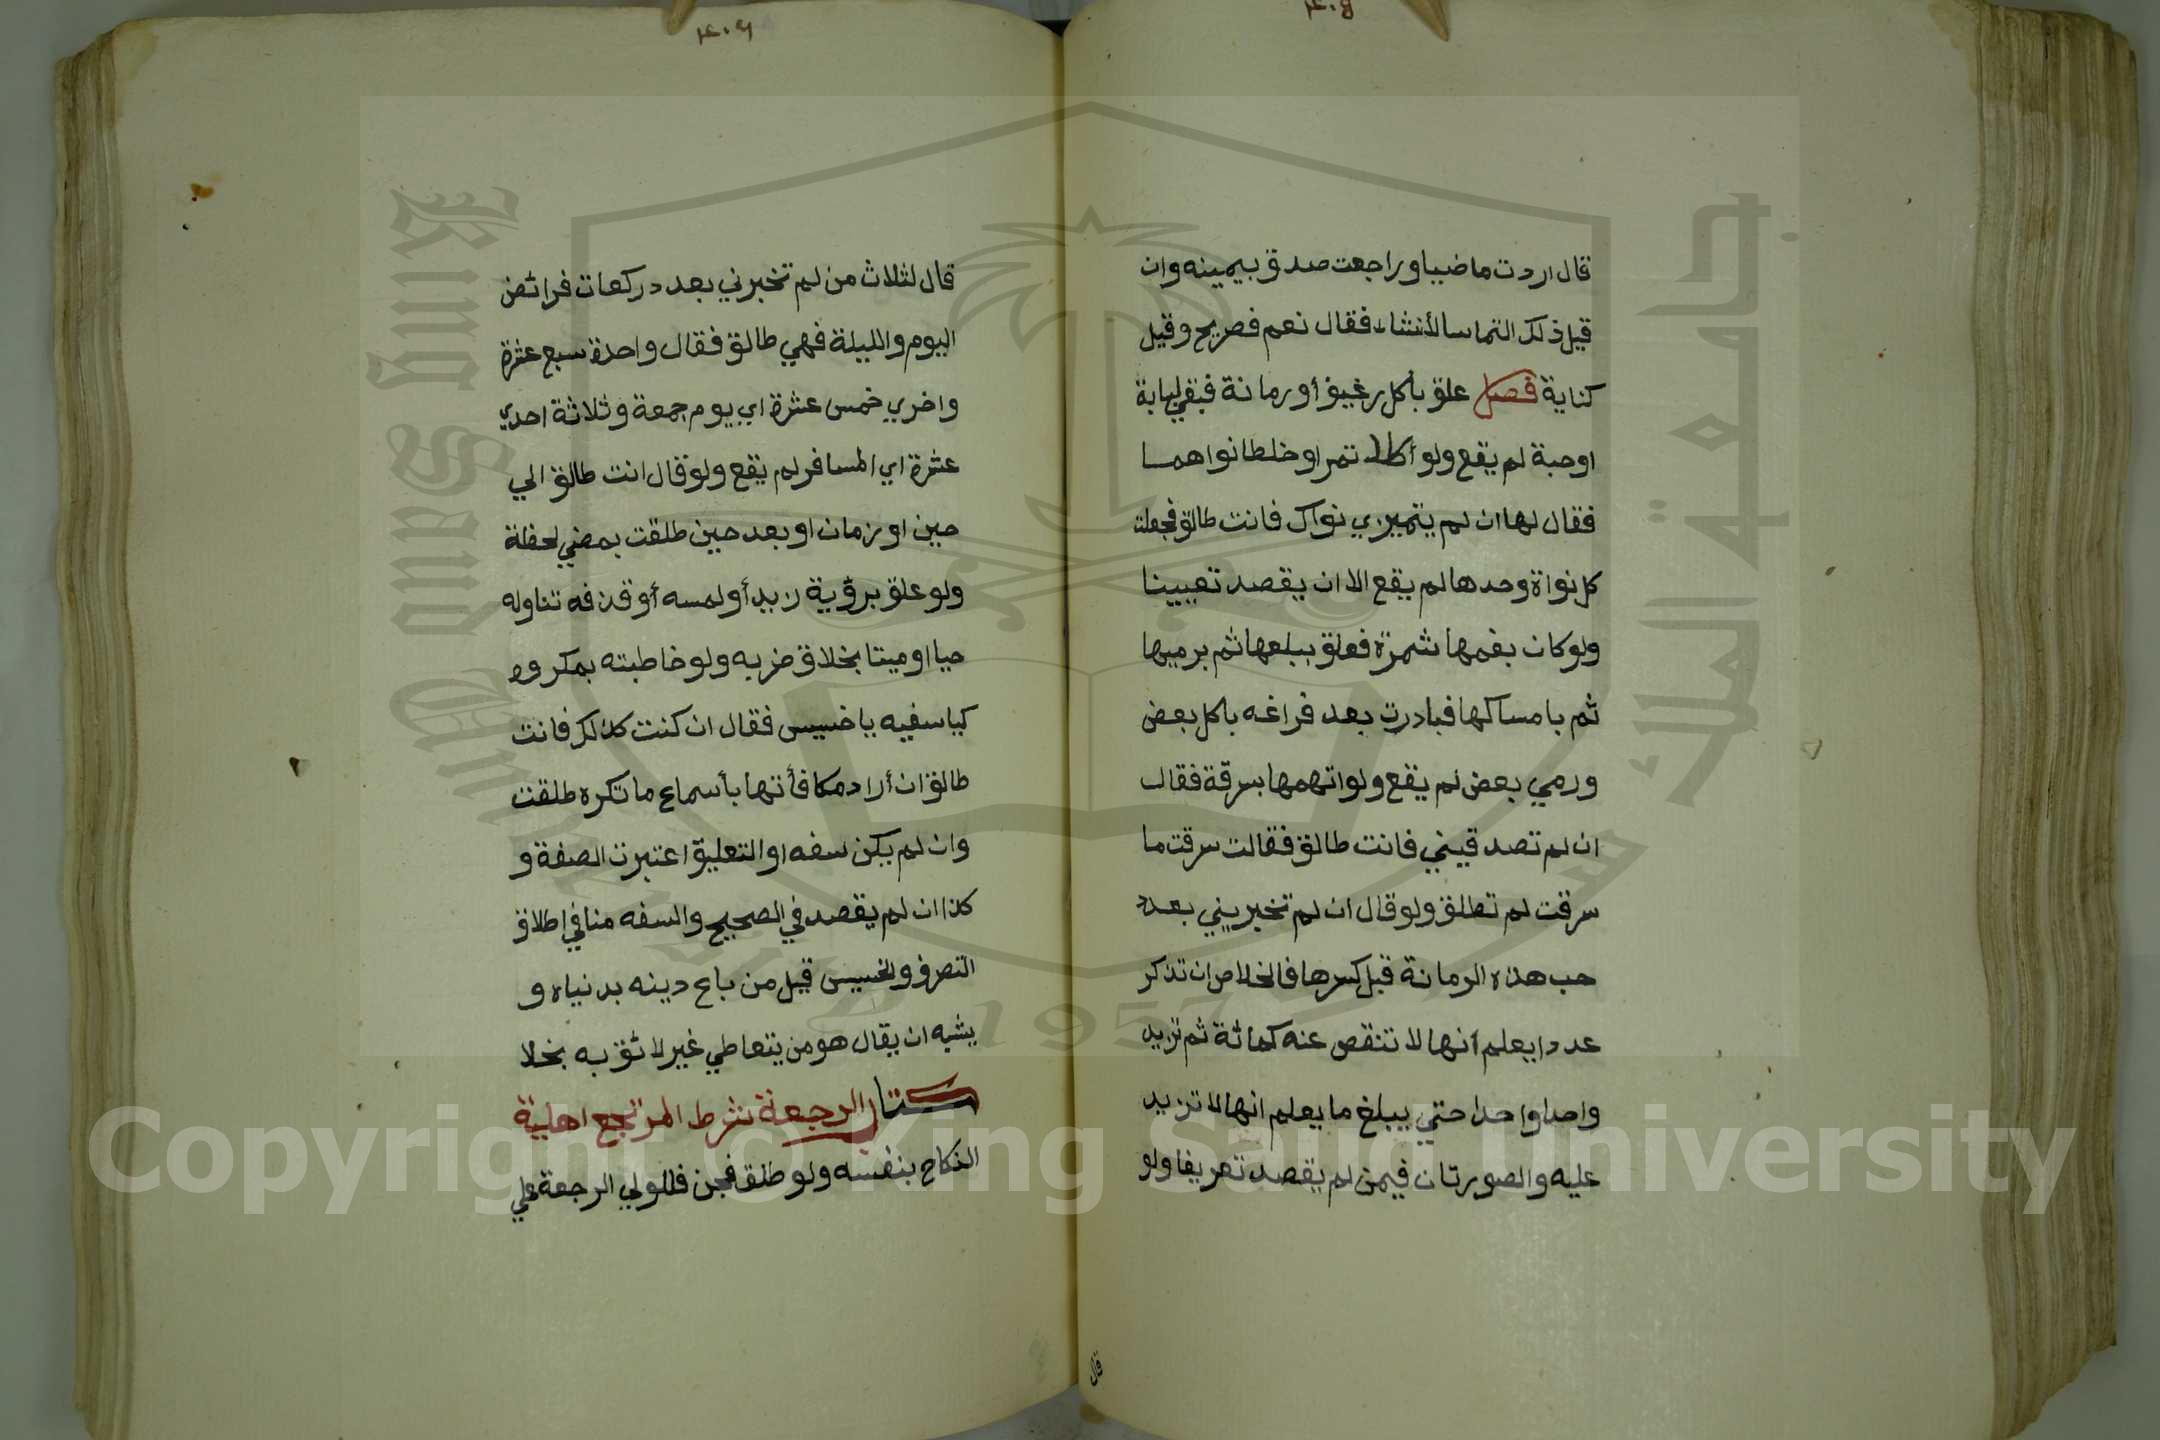 قال اردت ماضيا وراجعت صدق بيمينه وان
قيل ذلك التماسا لأنشاء فقال نعم فصريح وقيل
كناية فصل علق بأكل رغيف أو رمانة فبقي لبابة
اوحبة لم يقع ولو أكلا تمرا وخلطا نواهما
فقال لها ان لم يتميزي نواك فانت طالق فجعلت
كل نواة وحدها لم يقع الا ان يقصد تعيينا
ولو كان بفمها تمرة فعلق ببلعها ثم برميها
ثم بامساكها فبادرت بعد فراغه باكل بعض
ورمي بعض لم يقع ولو اتهمها بسرقة فقال
ان لم تصدقيني فانت طالق فقالت سرقت ما
سرقت لم تطلق ولو قال ان لم تخبريني بعدد
حب هذه الرمانة قبل كسرها فالخلاص ان تذكر
عددا يعلم أنها لا تنقص عنه كمائة ثم تزيد
واحدا واحدا حتي يبلغ ما يعلم انها لا تزيد
عليه والصورتان فيمن لم يقصد تعريفا ولو
قال
قال لثلاث من لم تخبرني بعدد ركعات فرائض
اليوم والليلة فهي طالق فقال واحدة سبع عشرة
واخري خمس عشرة اي يوم جمعة وثلاثة احدي
عشرة اي المسافر لم يقع ولو قال انت طالق الي
حين او زمان او بعد حين طلقت بمضي لحظة
ولو علق برؤية زيد أو لمسه أو قذفه تناوله
حيا او ميتا بخلاف ضربه ولو خاطبته بمكروه
كيا سفيه يا خسيس فقال ان كنت كذلك فانت
طالق ان أراد مكافأتها بأسماع ما تكره طلقت
وان لم يكن سفه او التعليق اعتبرت الصفة و
كذا ان لم يقصد في الصحيح والسفه منافي إطلاق
التصرف والخسيس قيل من باع دينه بدنياه و
يشبه ان يقال هو من يتعاطي غير لائق به بخلا
كتاب الرجعة شرط المرتجع اهلية
النكاح بنفسه ولو طلق فجن فللولي الرجعة علي